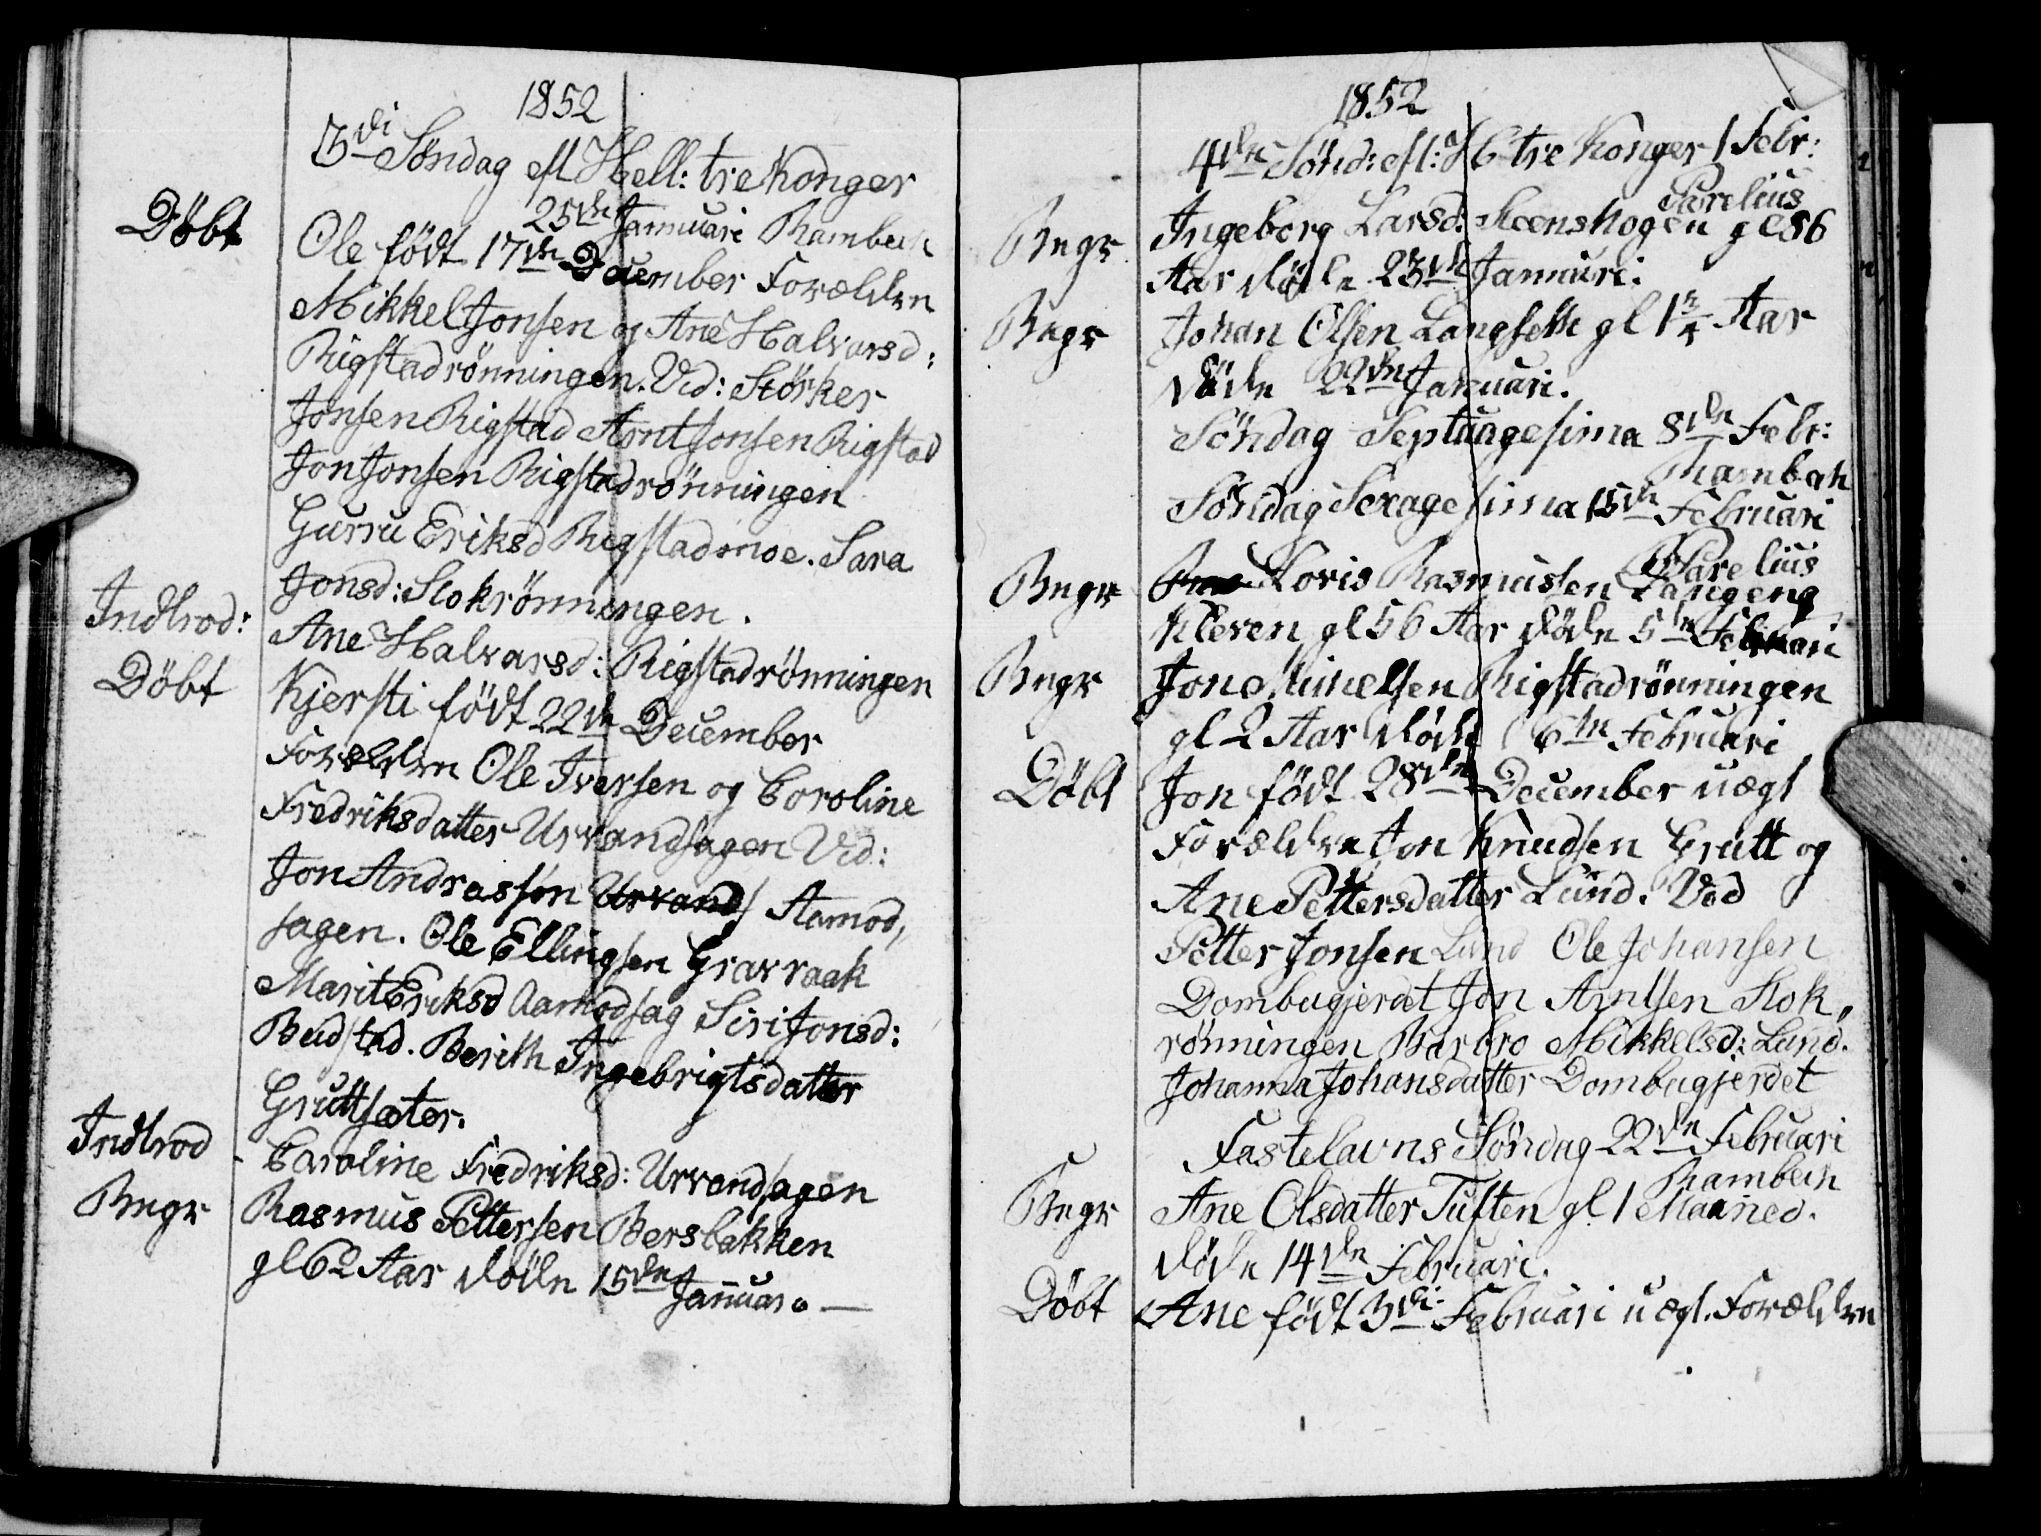 1852
3di Søndag eft Hell: tre Konger
25de Januari Rambech
Døbt
Ole født 17de December Forældre
Mikkel Jonsen og Ane Halvarsd:
Rigstadrönningen. Vid: Störker
Jonsen Rigstad Arnt Jonsen Rigstad
Jon Jonsen Rigstadrönningen
Gurru Eriksd Rigstadmoe. Sara
Jonsd: Stokrönningen.
Indtrod: Ane Halvarsd: Rigstadrönningen
Döbt Kjersti født 22de December
Forældre Ole Iversen og Caroline
Fredriksdatter Urvandsagen Vid:
Jon Andrassøn Urvands Aamod,
sagen. Ole Ellingsen Gravraak
Marit Eriksd Aamodsag Siri Jonsd:
Budstad. Berith Ingebrigtsdatter
Gruttseter.
Indtrod Caroline Fredriksd: Urvandsagen
Begr Rasmus Pettersen Bersbakken
gl 62 Aar døde 15de Januar.
1852
4de Sönd: eft: H 6 tre Konger 1 Febr:
Parelius
Begr Ingeborg Larsd: Steenshogen gl 86
Aar døde 23de Januari.
Begr Johan Olsen Langseth gl 1 3/4 Aar
døde 22de Januari.
Söndag Septuagesima 8de Febr:
Rambech
Söndag Sexagesima 15de Februari
Parelius
Begr Loris Rasmussen Langeng
Kleven gl 56 Aar døde 5te Februari
Begr Jon Rigstadrönningen
gl 2 Aar døde 6te Februari
Döbt Jon født 28de December uægt
Forældre Jon Knudsen Grutt og
Ane Pettersdatter Lund. Vid
Petter Jonsen Lund Ole Johansen
Dombugjerdet Jon Arntsen Stok,
rönningen Barbro Mikkelsd: Lund.
Johanna Johansdatter Dombugjerdet
Fastelavns Söndag 22de Februari
Rambech
Begr Ane Olsdatter Tuften gl 1 Maaned.
døde 14de Februari.
Döbt Ane født 3di Februari uægt. Forældre